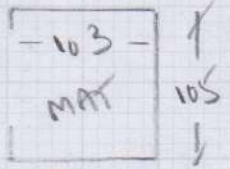 103
MAT
105